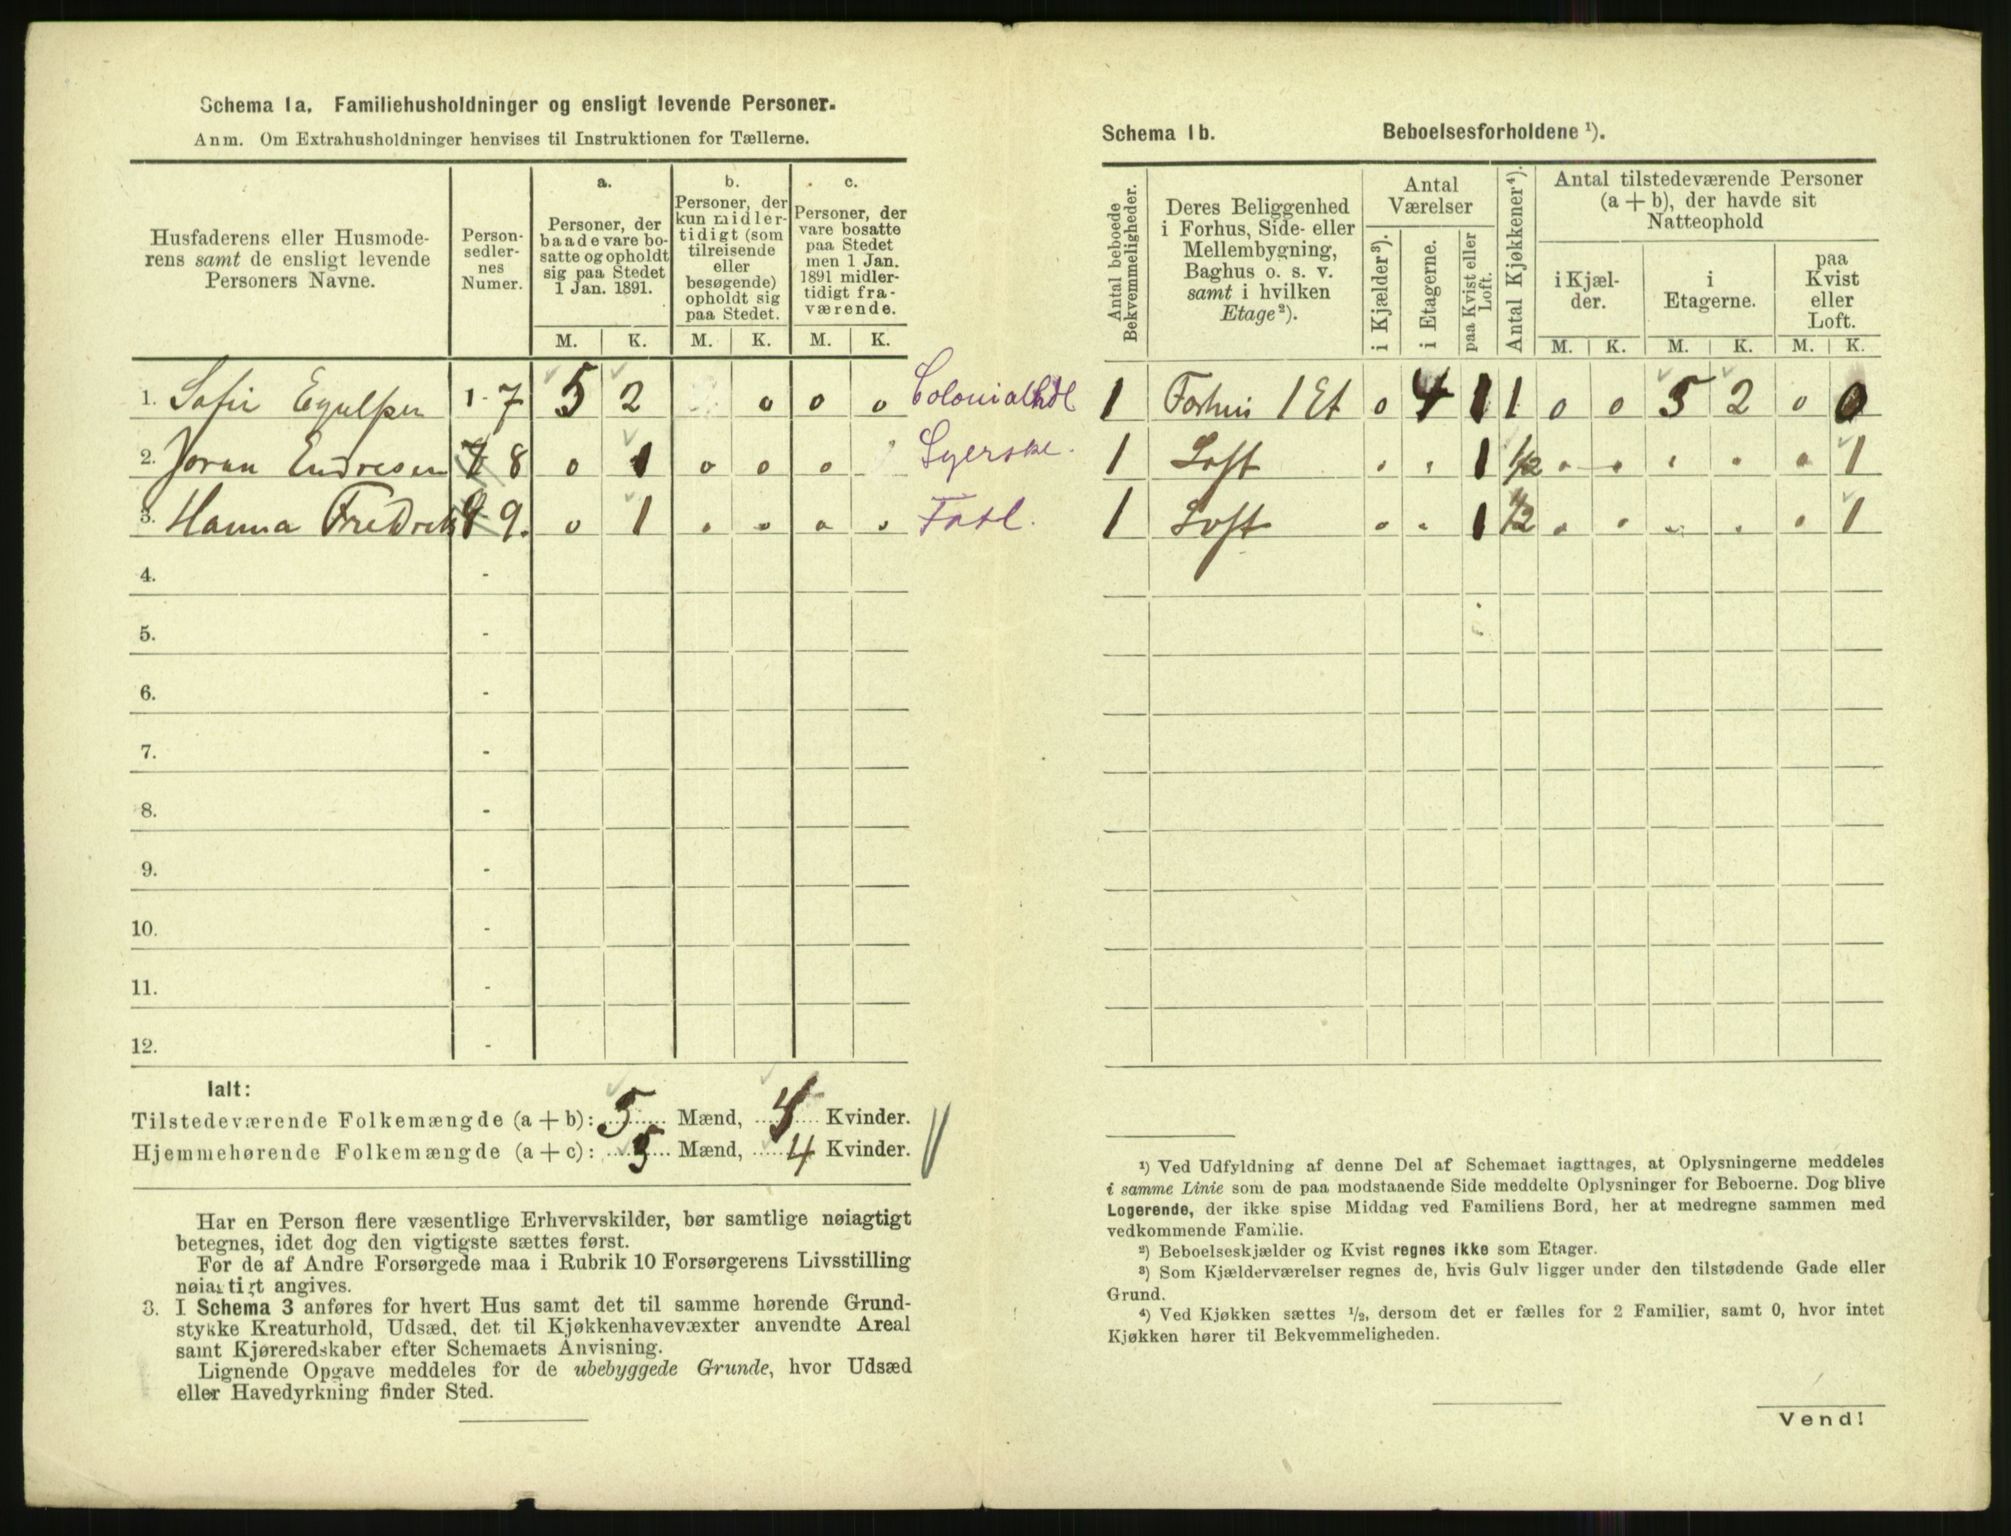 Schema 1a. Familiehusholdninger og ensligt levende Personer.
Anm. Om Extrahusholdninger henvises til Instruktionen for Tællerne.
Husfaderens eller Husmode-
rens samt de ensligt levende
Personers Navne.
Person-
sedler-
nes
Numer.
a.
Personer, der
baade vare bo-
satte og opholdt
sig paa Stedet
1 Jan. 1891.
b.
Personer, der
kun midler-
tidigt (som
tilreisende
eller
besøgende)
opholdt sig
paa Stedet.
c.
Personer, der
vare bosatte
paa Stedet
men 1 Jan.
1891 midler-
tidigt fra-
værende.
M. K. M. K. M. K.
1. Sofie 1-7 5 2 0 0 0 Colonialhdl
2. Joran Endresen 8 0 1 0 0 0 Syerske.
3. Hanna Fredrik 9. 0 1 Fatl.
4. -
5. -
6. -
7. -
8. -
9. -
10. -
11. -
12. -
Ialt:
Tilstedeværende Folkemængde (a + b): 5 Mænd, 4 Kvinder.
Hjemmehørende Folkemængde (a + c): 5 Mænd, 4 Kvinder.
Har en Person flere væsentlige Erhvervskilder, bør samtlige nøiagtigt
betegnes, idet dog den vigtigste sættes først.
For de af Andre Forsørgede maa i Rubrik 10 Forsørgerens Livsstilling
nøiagtigt angives.
3. I Schema 3 anføres for hvert Hus samt det til samme hørende Grund-
stykke Kreaturhold, Udsæd, det til Kjøkkenhavevæxter anvendte Areal
samt Kjøreredskaber efter Schemaets Anvisning.
Lignende Opgave meddeles for de ubebyggede Grunde, hvor Udsæd
eller Havedyrkning finder Sted.
Schema 1b. Beboelsesforholdene ¹).
Antal beboede
Bekvemmeligheder.
Deres Beliggenhed
i Forhus, Side- eller
Mellembygning,
Baghus o. s. v.
samt i hvilken
Etage ²).
Antal
Værelser
i Kjælder ³).
i Etagerne.
paa Kvist eller
Loft.
Antal Kjøkkener ⁴).
Antal tilstedeværende Personer
(a + b), der havde sit
Natteophold
i Kjæl-
der.
i
Etagerne.
paa
Kvist
eller
Loft.
M. K. M. K. M. K.
1 Forhus 1 Et 0 4 1 1 0 0 5 2 0 0
1 Loft 1 1/2 1
1 Loft 1 1/2 1
¹) Ved Udfyldning af denne Del af Schemaet iagttages, at Oplysningerne meddeles
i samme Linie som de paa modstaaende Side meddelte Oplysninger for Beboerne. Dog blive
Logerende, der ikke spise Middag ved Familiens Bord, her at medregne sammen med
vedkommende Familie.
²) Beboelseskjælder og Kvist regnes ikke som Etager.
³) Som Kjælderværelser regnes de, hvis Gulv ligger under den tilstødende Gade eller
Grund.
⁴) Ved Kjøkken sættes ½, dersom det er fælles for 2 Familier, samt 0, hvor intet
Kjøkken hører til Bekvemmeligheden.
Vend!